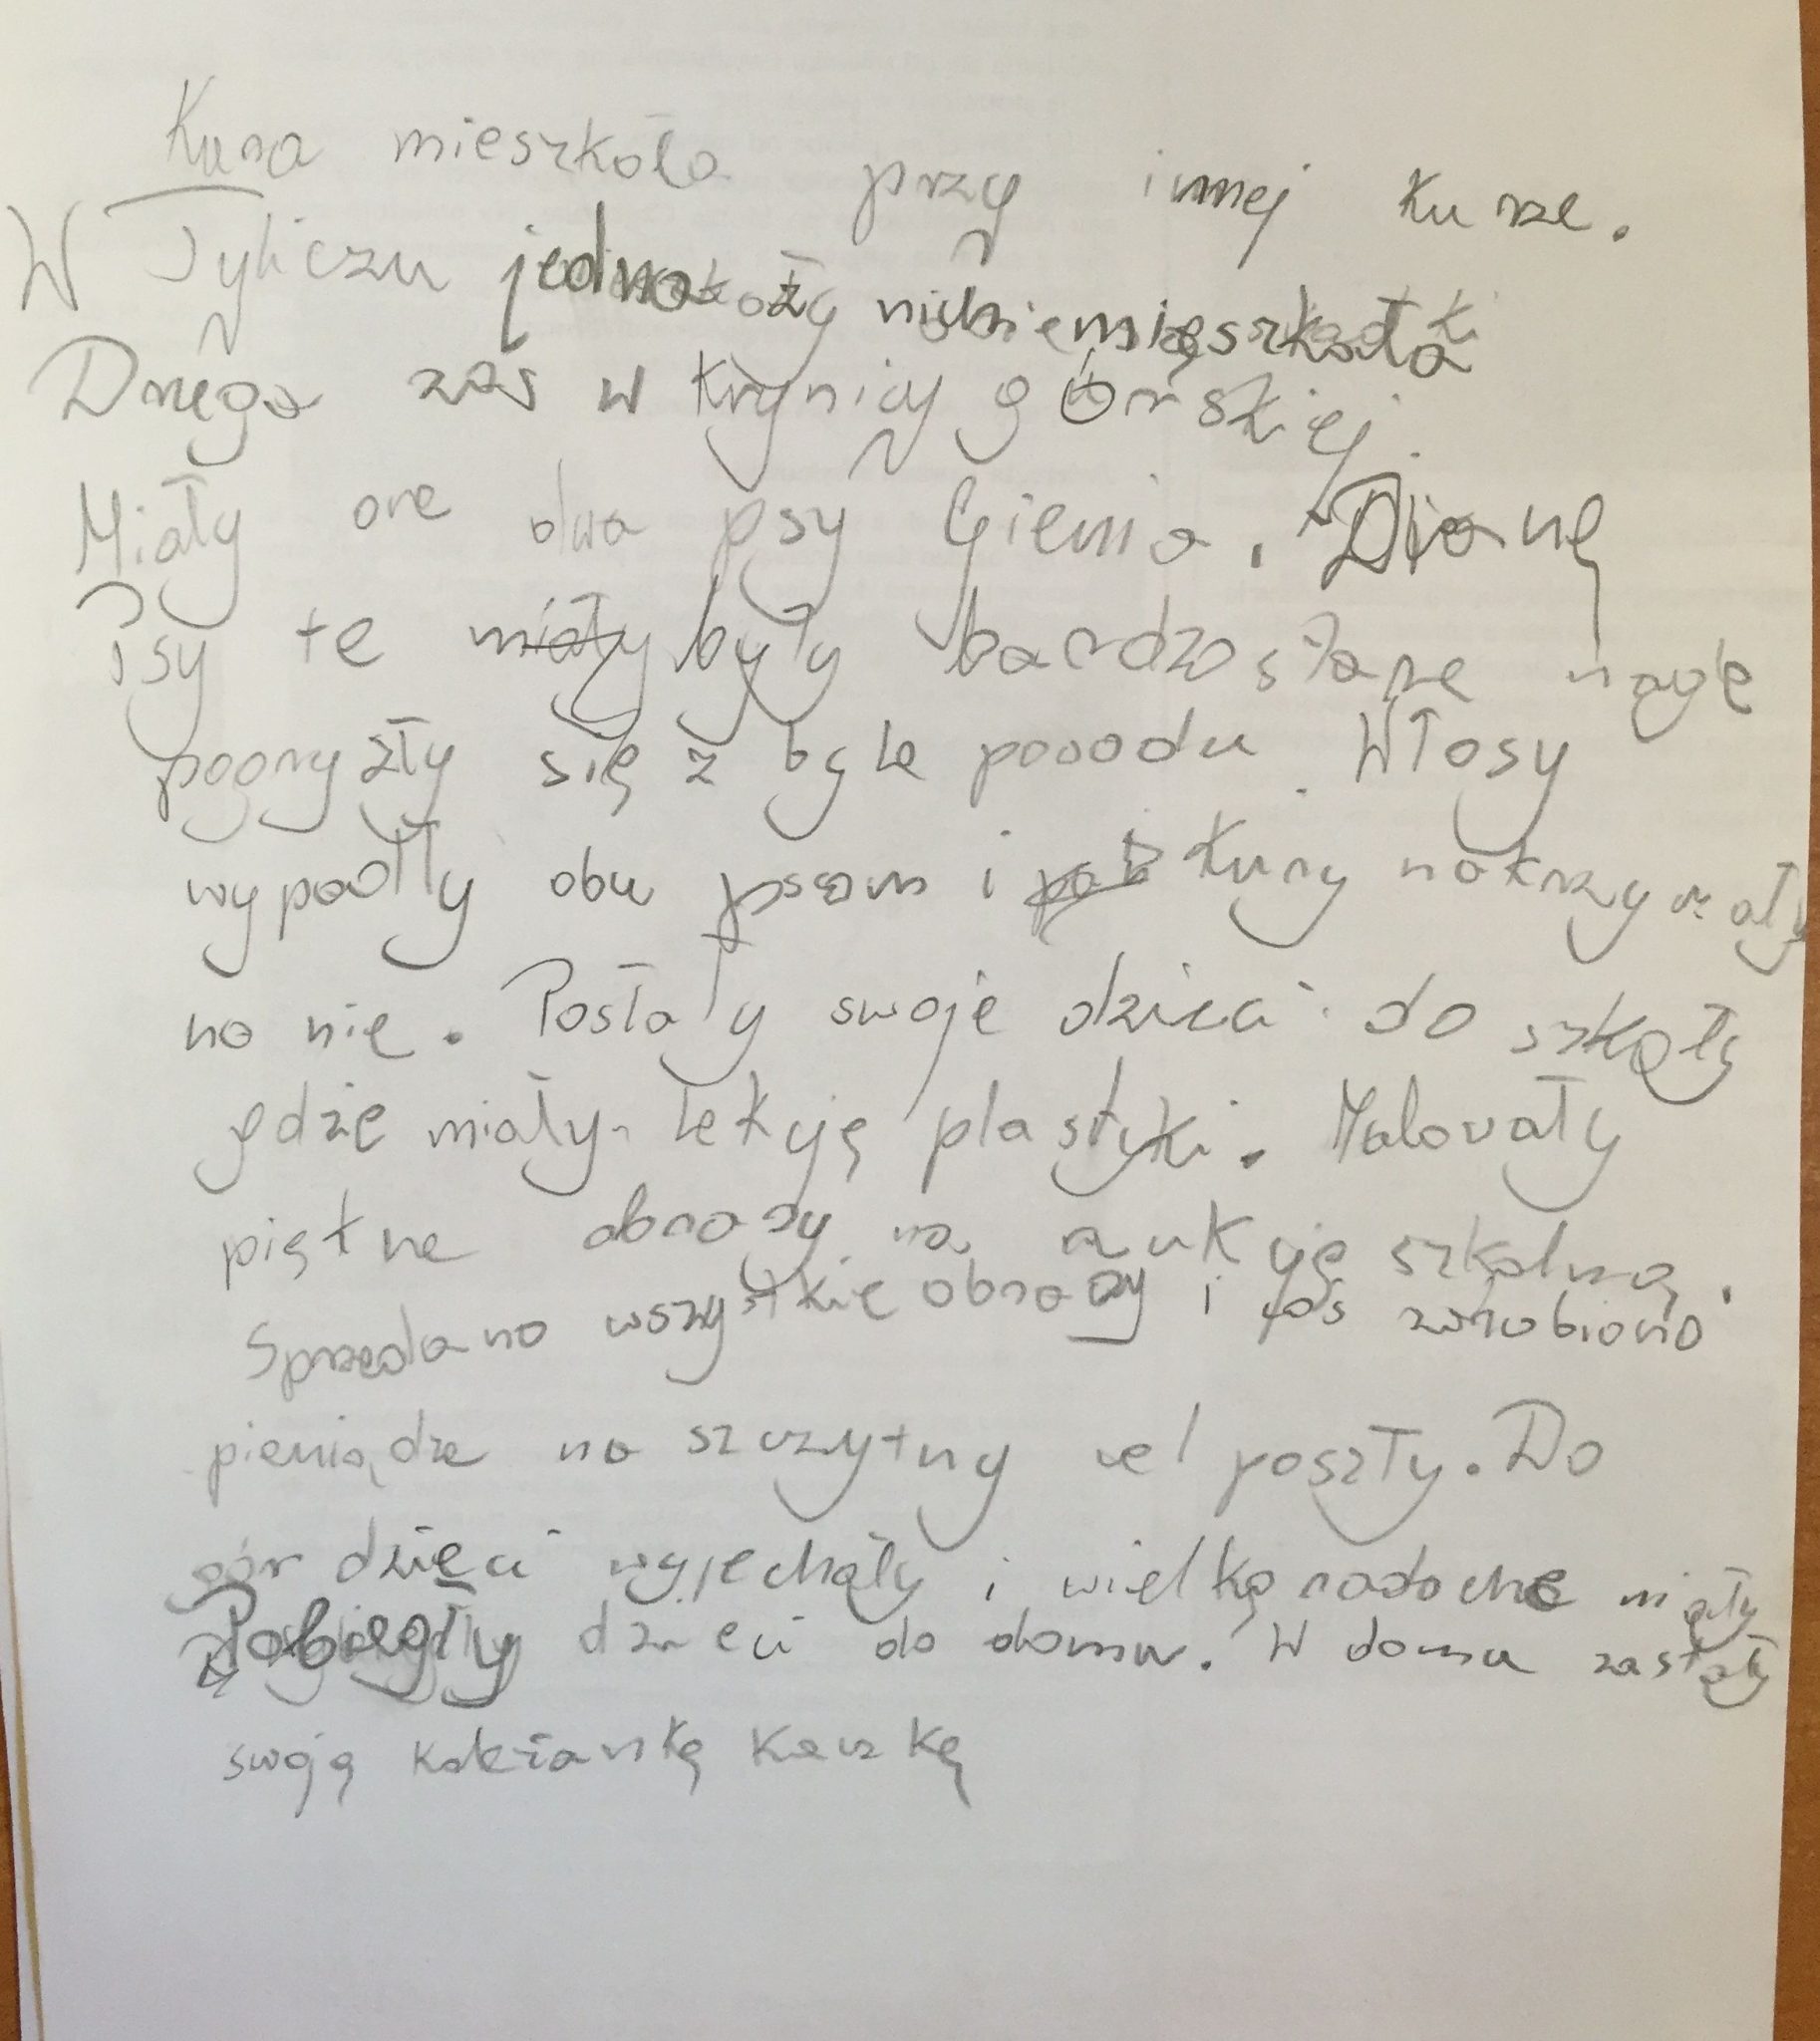 Kura mieszkała przy innej kurze.
W Tyliczu jedna mieszkała
Druga zaś w Krynicy górskiej.
Miały one dwa psy Gienia. Dianę
Psy te miały były bardzo stare nagle
pogryzły się z byle powodu. Włosy
wypadły obu psom i kury nakrzyczały
na nie. Posłały swoje dzieci do szkoły
gdzie miały lekcję plastyki. Malowały
piękne obrazy na aukcję szkolną.
Sprzedano wszystkie obrazy i zarobiono
pieniądze na szczytny cel poszły. Do
gór dzieci wyjechały i wielką radoche miały
Pobiegły dzieci do domu. W domu zastały
swoją koleżankę kaczkę